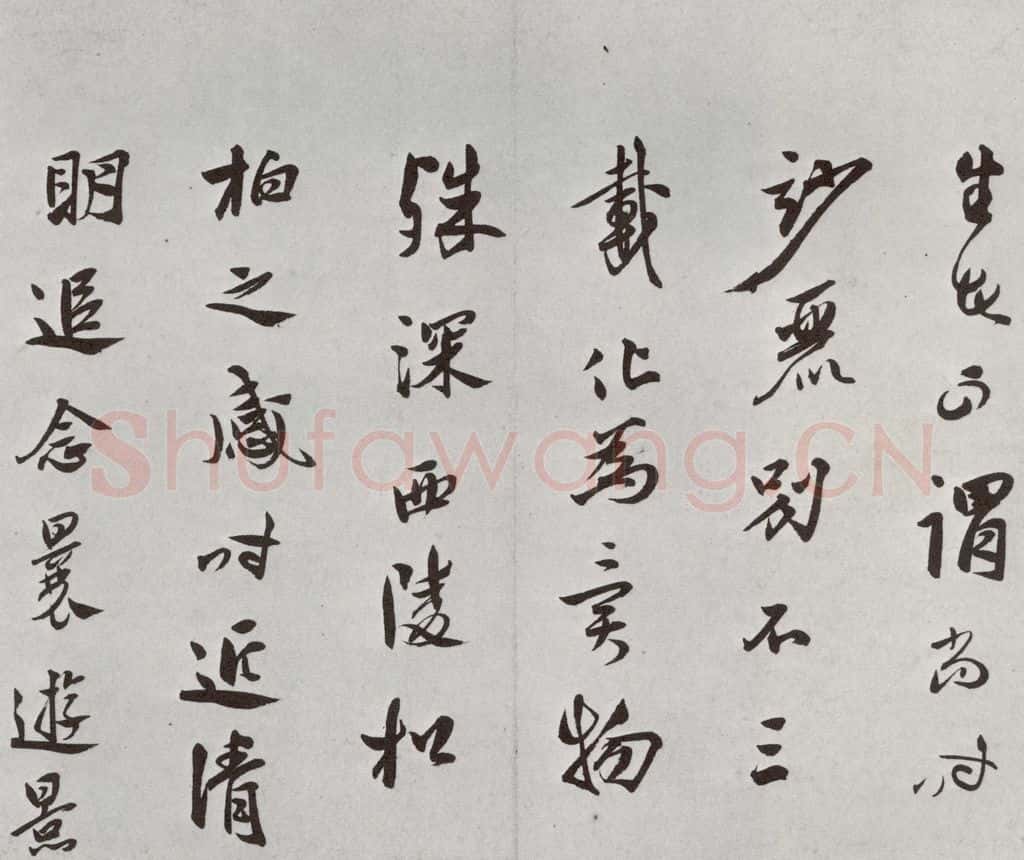 生謂尚时
玅麗別不三
載化為異物
殊深西陵松
柏之感时近清
明追念曩遊景
Shufawang.CN